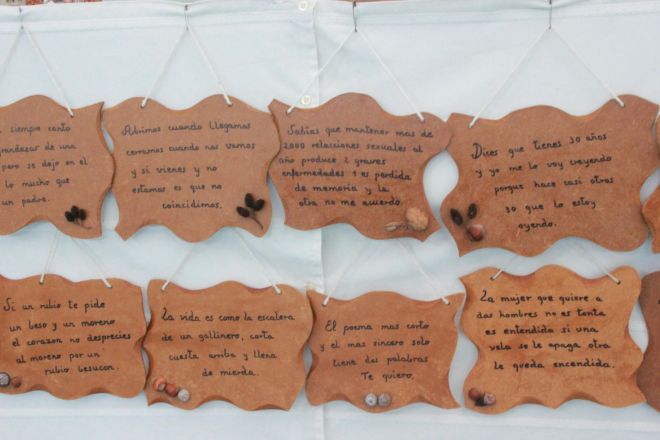 siempre canto
grandezas de una
pero se dejo en el
lo mucho que
un padre.
Abrimos cuando llegamos
cerramos cuando nos vamos
y si vienes y no
estamos es que no
coincidimos.
Sabias que mantener mas de
2000 relacciones sexuales al
año produce 2 graves
enfermedades 1 es perdida
de memoria y la
otra no me acuerdo.
Dices que tienes 30 años
y yo me lo voy creyendo
porque hace casi otros
30 que lo estoy
oyendo.
Si un rubio te pide
un beso y un moreno
el corazon no desprecies
al moreno por un
rubio besucon.
La vida es como la escalera
de un gallinero, corta
cuesta arriba y llena
de mierda.
El poema mas corto
y el mas sincero solo
tiene dos palabras
Te quiero.
La mujer que quiere a
dos hombres no es tonta
es entendida si una
vela se le apaga otra
le queda encendida.